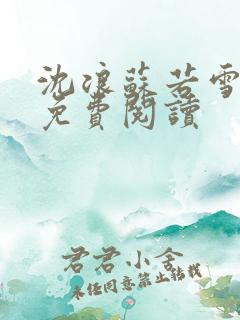 沈浪蘇若雪
免費閱讀
君君小舍
未經同意禁止轉載